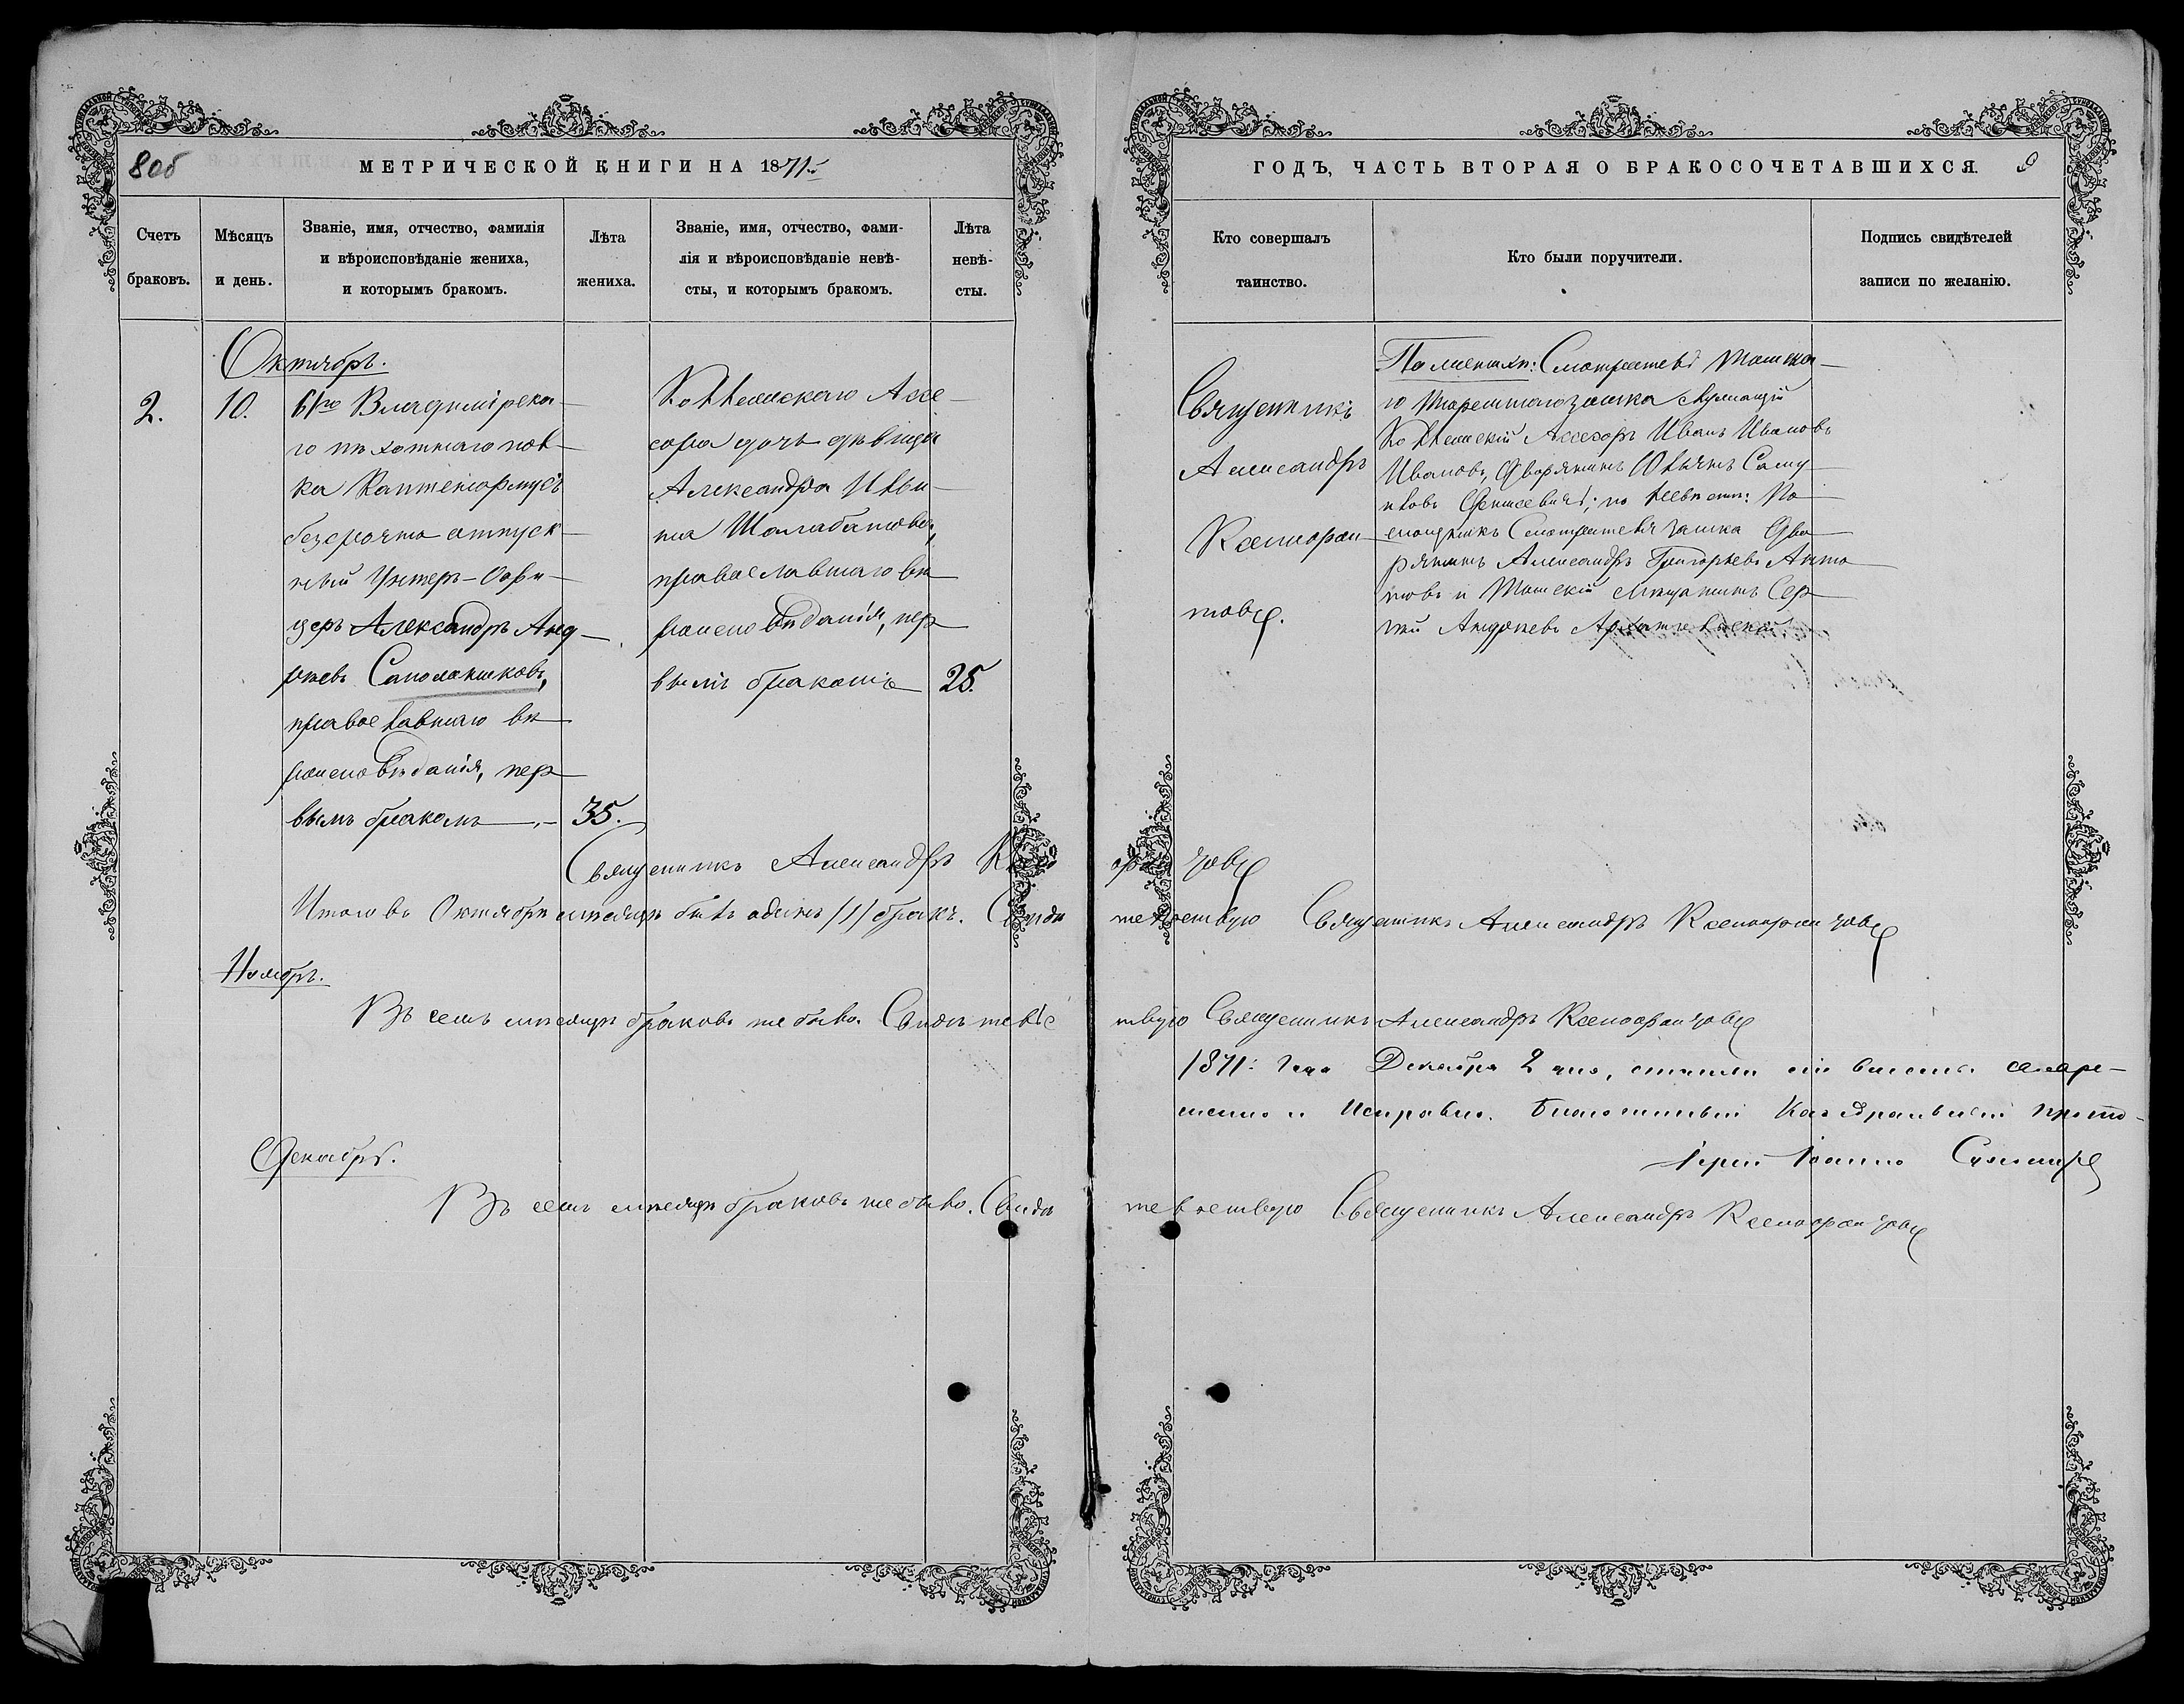 8об
МЕТРИЧЕСКОЙ КНИГИ НА 1871
ГОДЪ, ЧАСТЬ ВТОРАЯ О БРАКОСОЧЕТАВШИХСЯ.
9
Счетъ браковъ.
Мѣсяцъ и день.
Званіе, имя, отчество, фамилія
и вѣроисповѣданіе жениха,
и которымъ бракомъ.
Лѣта жениха.
Званіе, имя, отчество, фами-
лія и вѣроисповѣданіе невѣ-
сты, и которымъ бракомъ.
Лѣта невѣ-
сты.
Кто совершалъ
таинство.
Кто были поручители.
Подпись свидѣтелей
записи по желанію.
Октябрь.
2.
10.
61го Владимірска-
го пѣхотнаго пол-
ка Каптенармусъ
безсрочно отпуск-
ный Унтеръ-Офи-
церъ Александръ Анд-
реевъ Сапожниковъ,
православнаго вѣ-
роисповѣданія, пер-
вымъ бракомъ
35.
Коллежскаго Ассе-
сора дочь дѣвица
Александра Ильи-
на Шалабанова,
православнаго вѣ-
роисповѣданія, пер-
вымъ бракомъ
25.
Священникъ
Александръ
Ксенофон-
товъ.
По женихѣ: Смотритель Томска-
го Тюремнаго замка служащій
Коллежскій Ассесоръ Иванъ Ивановъ
Ивановъ, Дворянинъ
по невѣстѣ: По-
мощникъ Смотрителя замка Дво-
рянинъ Александръ Григорьевъ Анто-
новъ и Томскій мѣщанинъ Сер-
гѣй Андреевъ
Священникъ Александръ Ксенофонтовъ
Итого въ Октябрѣ мѣсяцѣ былъ одинъ /1/ бракъ. Свидѣтельствую Священникъ Александръ Ксенофонтовъ
Ноябрь.
Въ семъ мѣсяцѣ браковъ не было. Свидѣтельствую Священникъ Александръ Ксенофонтовъ
1871 года Декабря 2 дня,
и исправно. Благочинный Каѳедральный прото-
іерей Іоаннъ
Декабрь.
Въ семъ мѣсяцѣ браковъ не было. Свидѣтельствую Священникъ Александръ Ксенофонтовъ